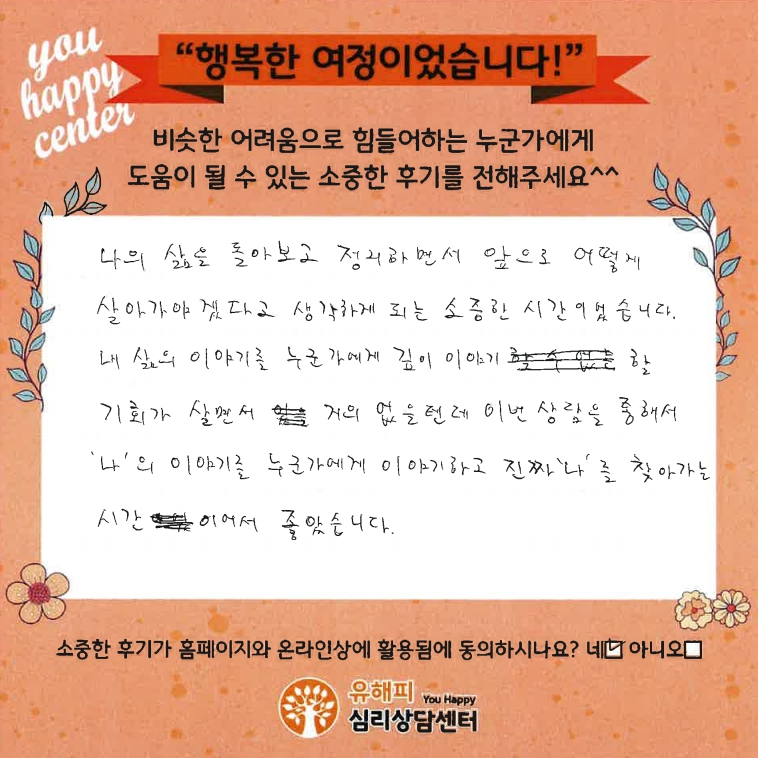 you
happy
center
“행복한 여정이었습니다!”
비슷한 어려움으로 힘들어하는 누군가에게
도움이 될 수 있는 소중한 후기를 전해주세요^^
나의 삶을 돌아보고 정리하면서 앞으로 어떻게
살아가야겠다고 생각하게 되는 소중한 시간이었습니다.
내 삶의 이야기를 누군가에게 깊이 이야기 할
기회가 살면서 거의 없을텐데 이번 상담을 통해서
'나'의 이야기를 누군가에게 이야기하고 진짜 '나'를 찾아가는
시간 이어서 좋았습니다.
소중한 후기가 홈페이지와 온라인상에 활용됨에 동의하시나요? 네☑ 아니오☐
유해피 You Happy
심리상담센터